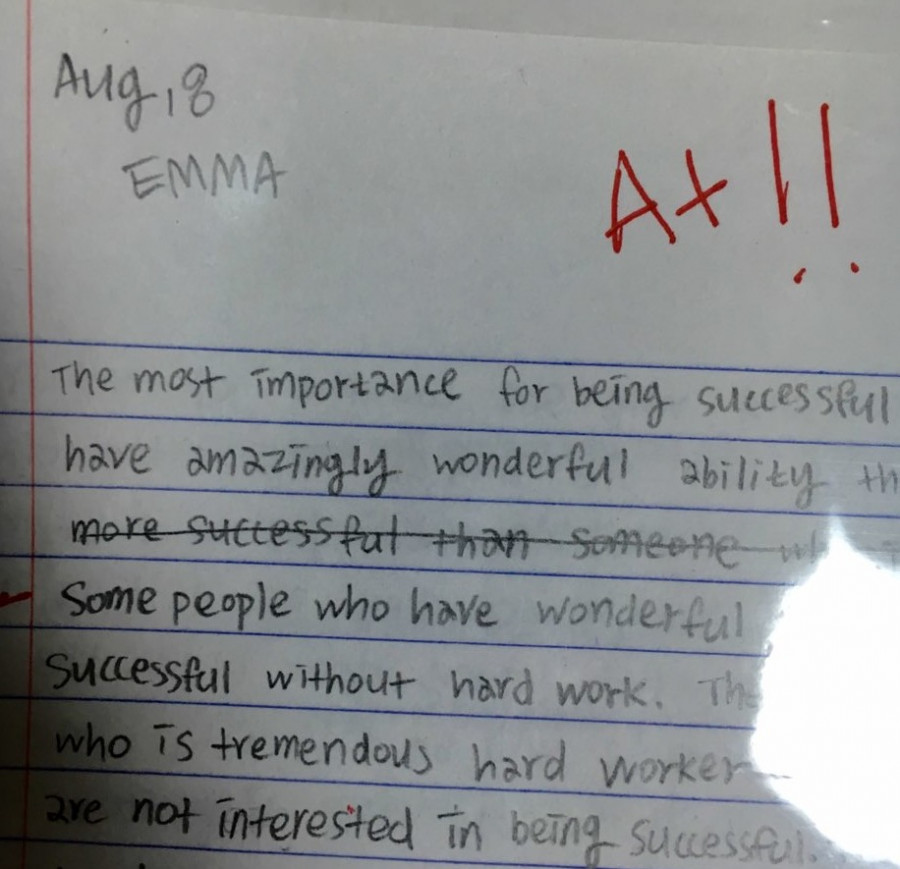 Aug, 8
EMMA
A+!!
The most importance for being successful
have amazingly wonderful ability
more successful than someone
Some people who have wonderful
successful without hard work.
who is tremendous hard worker
are not interested in being successful.